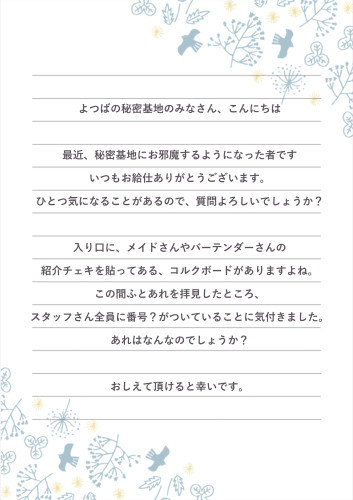 よつばの秘密基地のみなさん、こんにちは
最近、秘密基地にお邪魔するようになった者です
いつもお給仕ありがとうございます。
ひとつ気になることがあるので、質問よろしいでしょうか？
入り口に、メイドさんやバーテンダーさんの
紹介チェキを貼ってある、コルクボードがありますよね。
この間ふとあれを拝見したところ、
スタッフさん全員に番号？がついていることに気付きました。
あれはなんなのでしょうか？
おしえて頂けると幸いです。